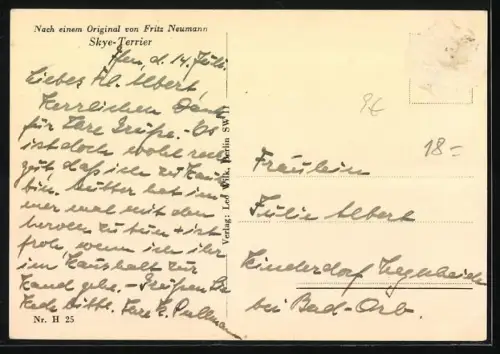 Nach einem Original von Fritz Neumann
Skye-Terrier
d. 14. Juli.
Liebes Frl. Albert,
Herrlichen Dank
für Ihre Grüße. - Es
ist doch wohl recht
gut, daß ich zu Hause
bin. Mutter hat im-
mer mal mit den
Nerven zu tun + ist
froh, wenn ich ihr
im Haushalt zur
Hand gehe. - Grüßen Sie
bitte. Ihre K. Pullmann
Nr. H 25
Verlag: Leo Wilk, Berlin SW 11
9€
18=
Fräulein
Julie Albert
Kinderdorf Wegscheide
bei Bad-Orb.